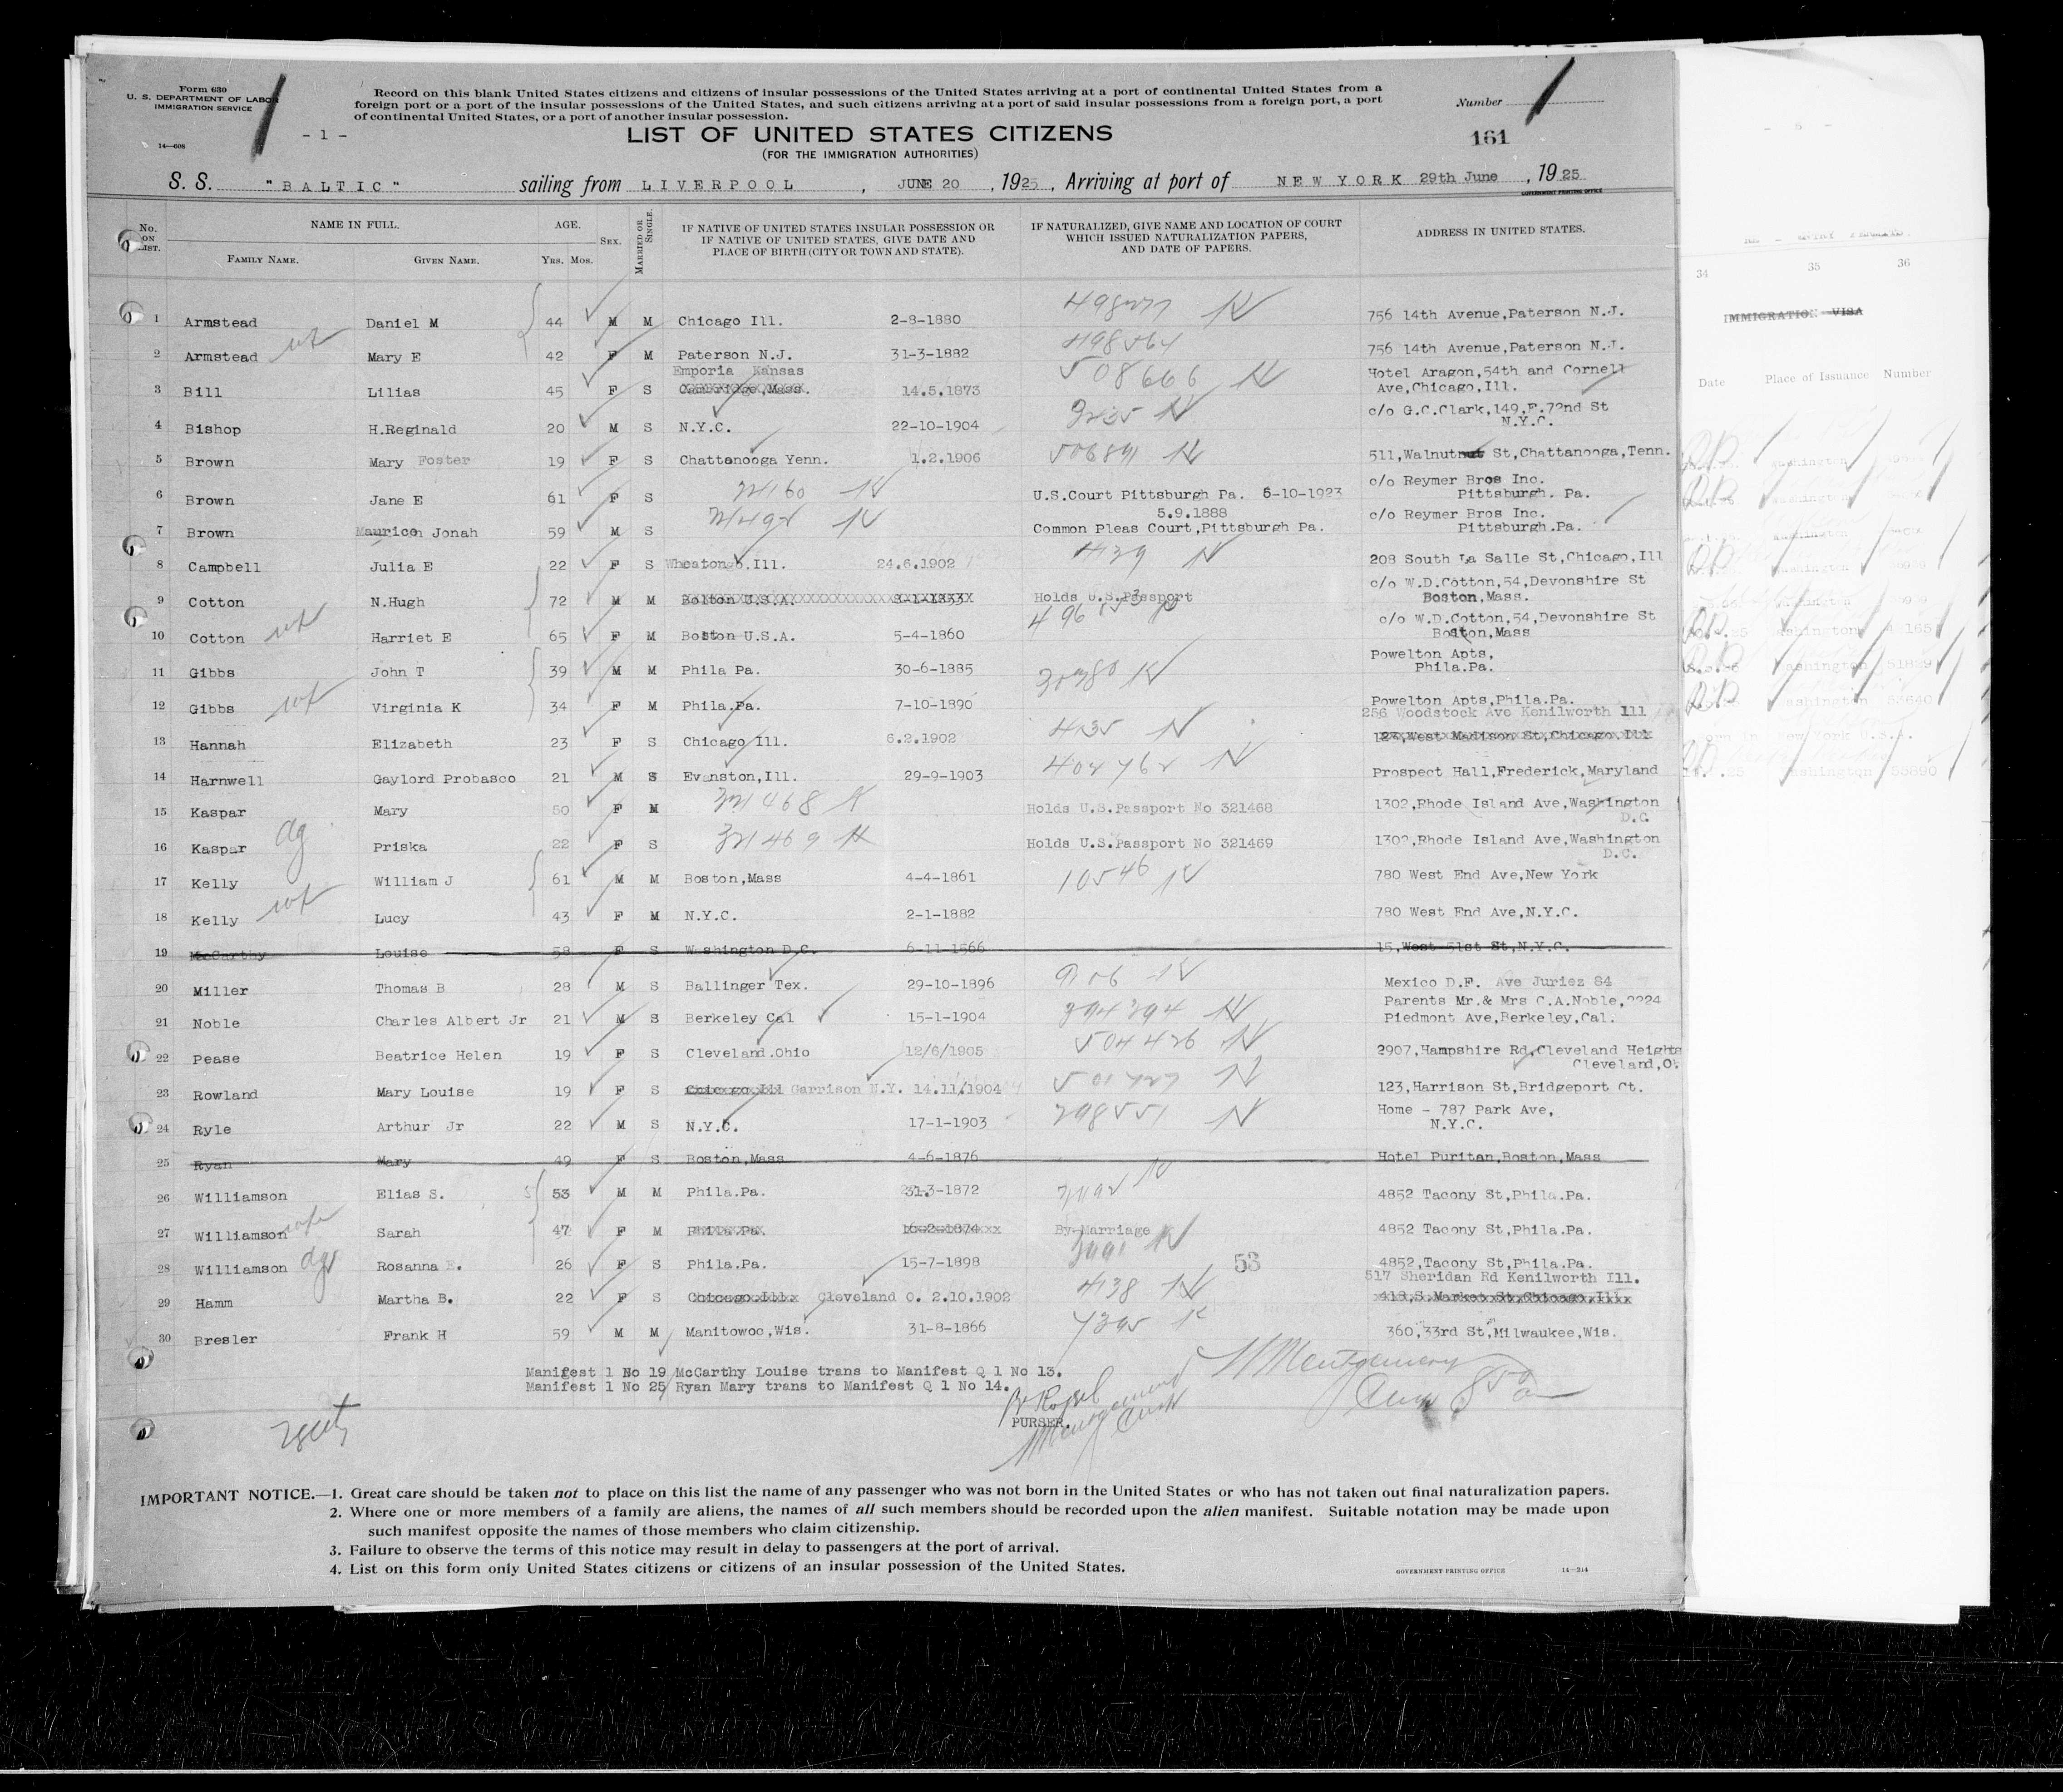 Form 630
U. S. DEPARTMENT OF LABOR
IMMIGRATION SERVICE
14—608
- 1 -
Record on this blank United States citizens and citizens of insular possessions of the United States arriving at a port of continental United States from a
foreign port or a port of the insular possessions of the United States, and such citizens arriving at a port of said insular possessions from a foreign port, a port
of continental United States, or a port of another insular possession.
Number
161
LIST OF UNITED STATES CITIZENS
(FOR THE IMMIGRATION AUTHORITIES)
S. S. "BALTIC" sailing from LIVERPOOL, JUNE 20, 1925, Arriving at port of NEW YORK 29th June, 1925
GOVERNMENT PRINTING OFFICE
No. ON LIST. NAME IN FULL. FAMILY NAME. GIVEN NAME. AGE. YRS. MOS. SEX. MARRIED OR SINGLE. IF NATIVE OF UNITED STATES INSULAR POSSESSION OR IF NATIVE OF UNITED STATES, GIVE DATE AND PLACE OF BIRTH (CITY OR TOWN AND STATE). IF NATURALIZED, GIVE NAME AND LOCATION OF COURT WHICH ISSUED NATURALIZATION PAPERS, AND DATE OF PAPERS. ADDRESS IN UNITED STATES.
1 Armstead Daniel M 44 M M Chicago Ill. 2-8-1880 498277 756 14th Avenue,Paterson N.J.
2 Armstead Mary E 42 F M Paterson N.J. 31-3-1882 498564 756 14th Avenue,Paterson N.J.
3 Bill Lilias 45 F S Emporia Kansas Cambridge,Mass. 14.5.1873 508666 Hotel Aragon,54th and Cornell Ave,Chicago,Ill.
4 Bishop H.Reginald 20 M S N.Y.C. 22-10-1904 3235 c/o G.C.Clark,149,E.72nd St N.Y.C.
5 Brown Mary Foster 19 F S Chattanooga Yenn. 1.2.1906 506891 511,Walnut St,Chattanooga,Tenn.
6 Brown Jane E 61 F S 24160 U.S.Court Pittsburgh Pa. 6-10-1923 c/o Reymer Bros Inc. Pittsburgh. Pa.
7 Brown Maurice Jonah 59 M S 5.9.1888 Common Pleas Court,Pittsburgh Pa. c/o Reymer Bros Inc. Pittsburgh.Pa.
8 Campbell Julia E 22 F S Wheaton.Ill. 24.6.1902 439 208 South La Salle St,Chicago,Ill
9 Cotton N.Hugh 72 M M Bolton U.S.A. Holds U.S.Passport c/o W.D.Cotton,54,Devonshire St Boston,Mass.
10 Cotton Harriet E 65 F M Boston U.S.A. 5-4-1860 c/o W.D.Cotton,54,Devonshire St Boston,Mass
11 Gibbs John T 39 M M Phila Pa. 30-6-1885 30980 Powelton Apts, Phila.Pa.
12 Gibbs Virginia K 34 F M Phila.Pa. 7-10-1890 Powelton Apts,Phila.Pa.
13 Hannah Elizabeth 23 F S Chicago Ill. 6.2.1902 435 256 Woodstock Ave Kenilworth Ill West Madison St,Chicago,Ill
14 Harnwell Gaylord Probasco 21 M S Evanston,Ill. 29-9-1903 402762 Prospect Hall,Frederick,Maryland
15 Kaspar Mary 50 F M 321468 Holds U.S.Passport No 321468 1302,Rhode Island Ave,Washington D.C.
16 Kaspar Priska 22 F S 321469 Holds U.S.Passport No 321469 1302,Rhode Island Ave,Washington D.C.
17 Kelly William J 61 M M Boston,Mass 4-4-1861 10546 780 West End Ave,New York
18 Kelly Lucy 43 F M N.Y.C. 2-1-1882 780 West End Ave,N.Y.C.
19 McCarthy Louise 58 F S Washington D.C. 6-11-1866 15,West 51st St,N.Y.C.
20 Miller Thomas B 28 M S Ballinger Tex. 29-10-1896 9106 Mexico D.F. Ave Juriez 84
21 Noble Charles Albert Jr 21 M S Berkeley Cal 15-1-1904 394394 Parents Mr.& Mrs C.A.Noble,2224 Piedmont Ave,Berkeley,Cal.
22 Pease Beatrice Helen 19 F S Cleveland.Ohio 12/6/1905 504426 2907,Hampshire Rd,Cleveland Heights Cleveland,O.
23 Rowland Mary Louise 19 F S Chicago Ill Garrison N.Y. 14.11/1904 501727 123,Harrison St,Bridgeport Ct.
24 Ryle Arthur Jr 22 M S N.Y.C. 17-1-1903 298551 Home - 787 Park Ave, N.Y.C.
25 Ryan Mary 49 F S Boston,Mass 4-6-1876 Hotel Puritan,Boston,Mass
26 Williamson Elias S. 53 M M Phila.Pa. 31-3-1872 4852 Tacony St,Phila.Pa.
27 Williamson Sarah 47 F M Phila.Pa. 16-2-1874 By Marriage 4852 Tacony St,Phila.Pa.
28 Williamson Rosanna E. 26 F S Phila.Pa. 15-7-1898 53 4852,Tacony St,Phila.Pa.
29 Hamm Martha B. 22 F S Chicago.Ill. Cleveland O. 2.10.1902 438 517 Sheridan Rd Kenilworth Ill. 418,S.Market St,Chicago,Ill
30 Bresler Frank H 59 M M Manitowoc,Wis. 31-8-1866 7395 360,33rd St,Milwaukee,Wis.
Manifest 1 No 19 McCarthy Louise trans to Manifest Q 1 No 13.
Manifest 1 No 25 Ryan Mary trans to Manifest Q 1 No 14.
PURSER.
IMPORTANT NOTICE.—1. Great care should be taken not to place on this list the name of any passenger who was not born in the United States or who has not taken out final naturalization papers.
2. Where one or more members of a family are aliens, the names of all such members should be recorded upon the alien manifest. Suitable notation may be made upon
such manifest opposite the names of those members who claim citizenship.
3. Failure to observe the terms of this notice may result in delay to passengers at the port of arrival.
4. List on this form only United States citizens or citizens of an insular possession of the United States.
GOVERNMENT PRINTING OFFICE 14—214
34 35 36
IMMIGRATION VISA
Date Place of Issuance Number